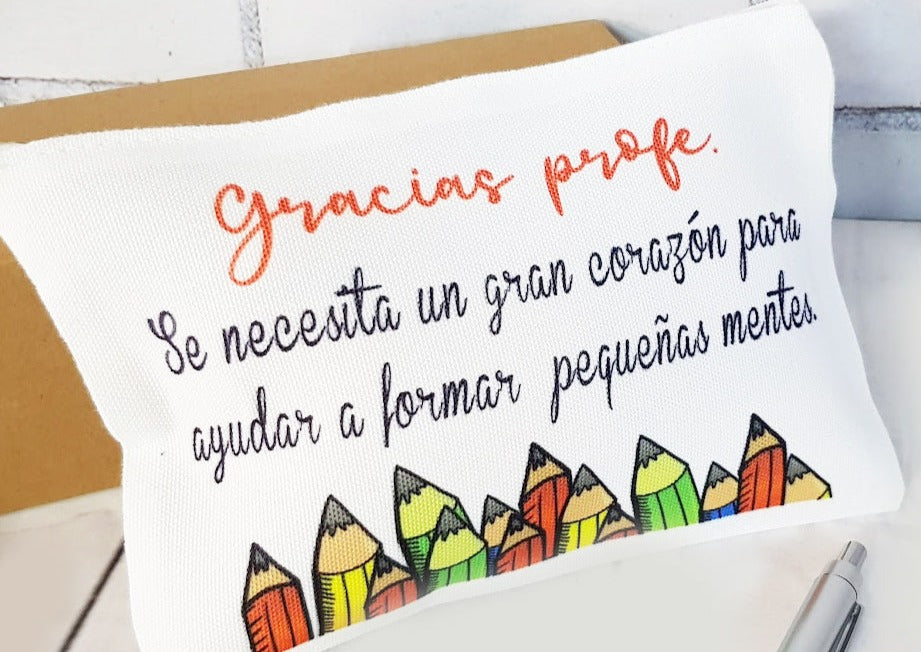 Gracias profe.
Se necesita un gran corazón para
ayudar a formar pequeñas mentes.